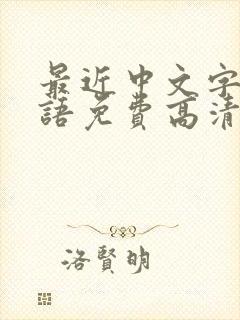 最近中文字
語免费高清
洛賢明